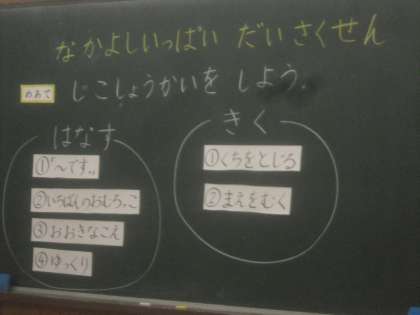 なかよしいっぱい だいさくせん
めあて じこしょうかいを しよう。
はなす
①「～です。」
②いちばんのおむろっこ
③おおきなこえ
④ゆっくり
きく
①くちをとじる
②まえをむく